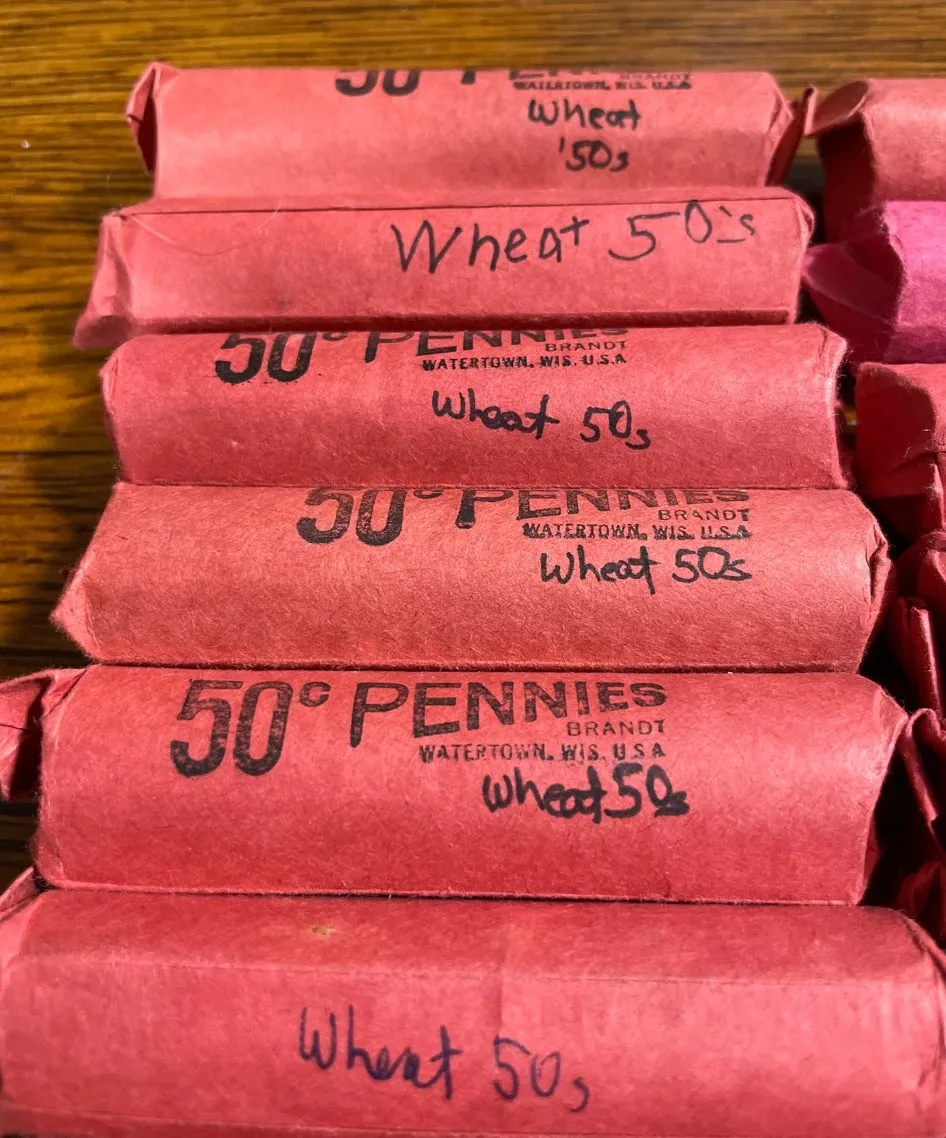 50 PENNIES
BRANDT
WATERTOWN, WIS. U.S.A
Wheat
'50s
Wheat 50's
50c PENNIES
BRANDT
WATERTOWN, WIS. U.S.A
Wheat 50s
50c PENNIES
BRANDT
WATERTOWN, WIS. U.S.A
Wheat 50s
50c PENNIES
BRANDT
WATERTOWN, WIS. U.S.A
Wheat 50s
Wheat 50s